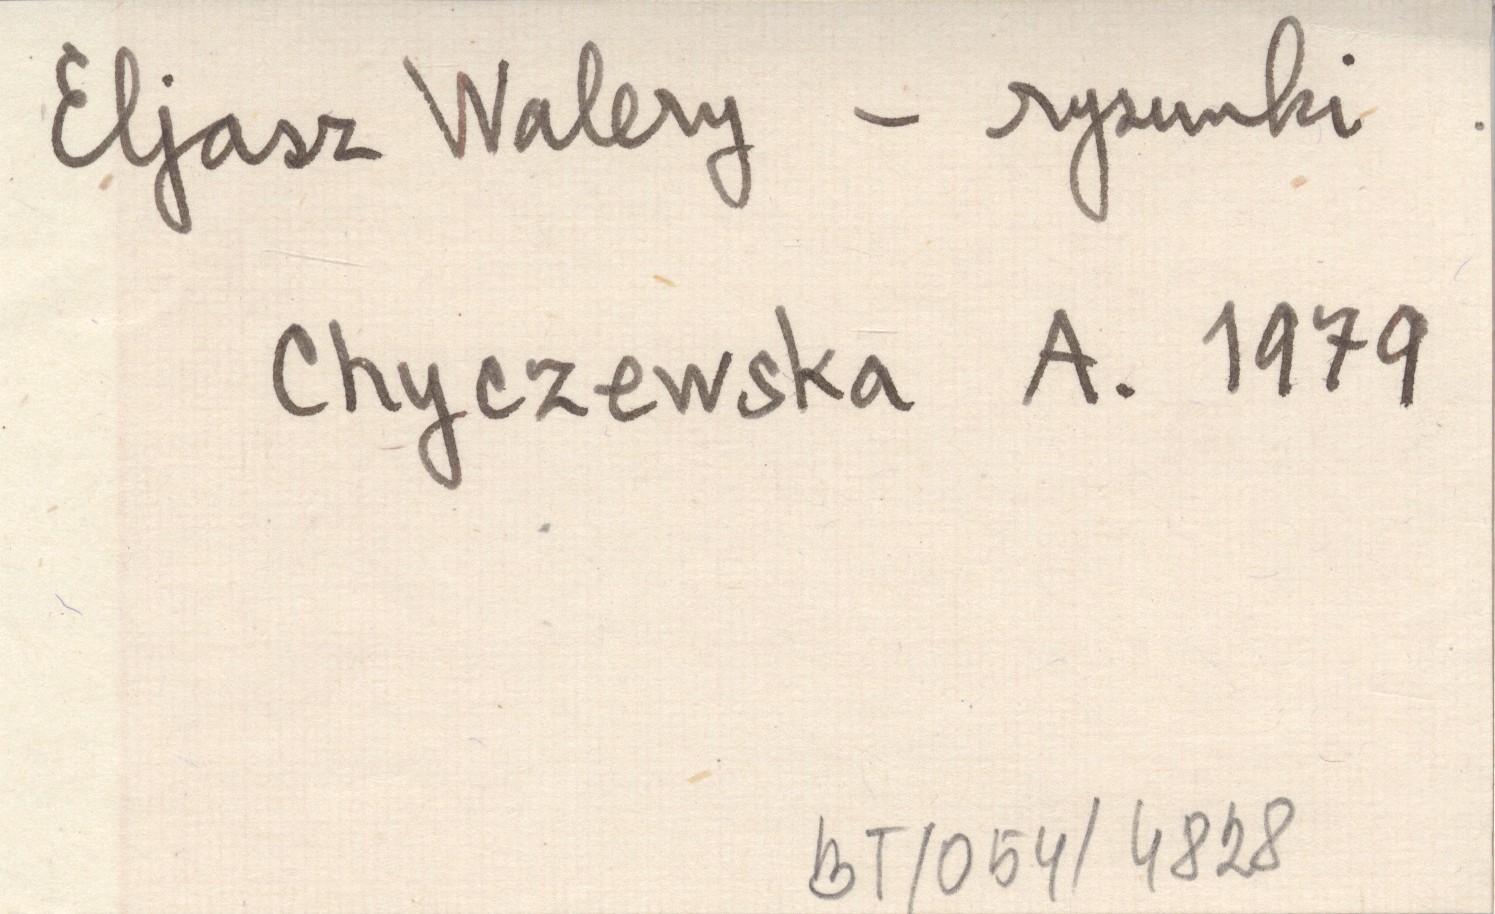 Eljasz Walery - rysunki
Chyczewska A. 1979
BT/054/4828